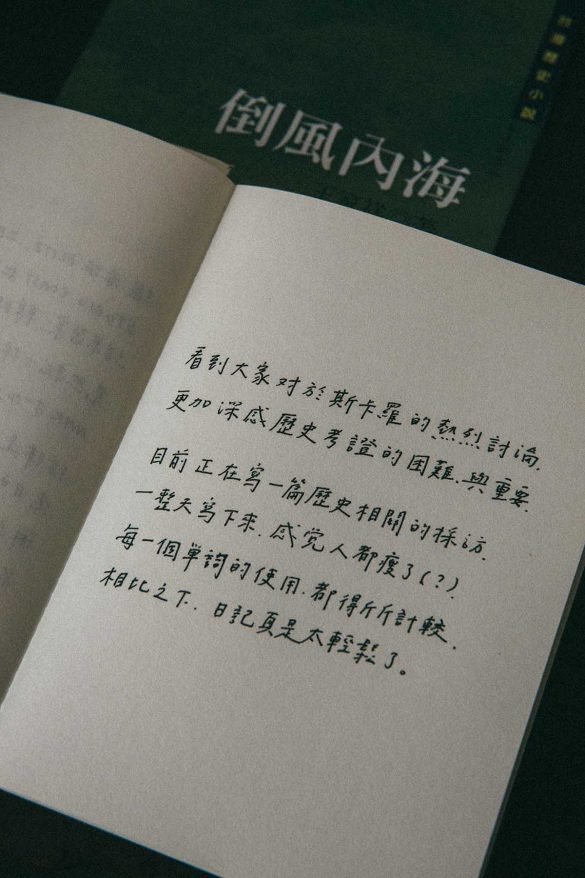 台灣歷史小說
倒風內海
看到大家对於斯卡羅的熱烈討論.
更加深感歷史考證的困難.與重要.
目前正在寫一篇歷史相關的採访.
一整天寫下來.感觉人都瘦了(?).
每一個單詞的使用.都得斤斤計較.
相比之下.日記真是太輕鬆了。